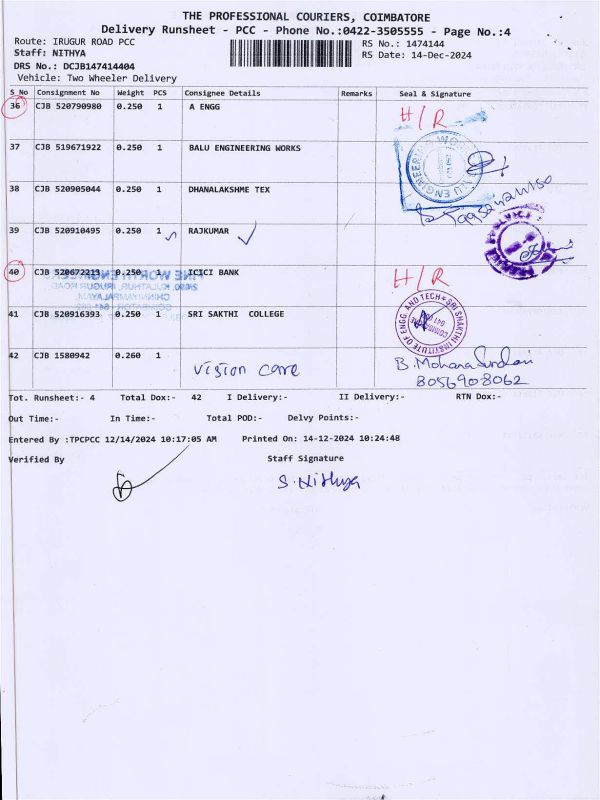 THE PROFESSIONAL COURIERS, COIMBATORE
Delivery Runsheet - PCC - Phone No.:0422-3505555 - Page No.:4
Route: IRUGUR ROAD PCC RS No.: 1474144
Staff: NITHYA RS Date: 14-Dec-2024
DRS No.: DCJB147414404
Vehicle: Two Wheeler Delivery
S No Consignment No Weight PCS Consignee Details Remarks Seal & Signature
36 CJB 520790980 0.250 1 A ENGG H/R
37 CJB 519671922 0.250 1 BALU ENGINEERING WORKS
38 CJB 520905044 0.250 1 DHANALAKSHME TEX
39 CJB 520910495 0.250 1 RAJKUMAR
40 CJB 520672213 0.250 1 ICICI BANK H/R
41 CJB 520916393 0.250 1 SRI SAKTHI COLLEGE
SRI SHAKTHI INSTITUTE OF ENGG. AND TECH
42 CJB 1580942 0.260 1 Vision care B. Mohana Sundari
8056908062
Tot. Runsheet:- 4 Total Dox:- 42 I Delivery:- II Delivery:- RTN Dox:-
Out Time:- In Time:- Total POD:- Delvy Points:-
Entered By :TPCPCC 12/14/2024 10:17:05 AM Printed On: 14-12-2024 10:24:48
Verified By Staff Signature
S. Nithya